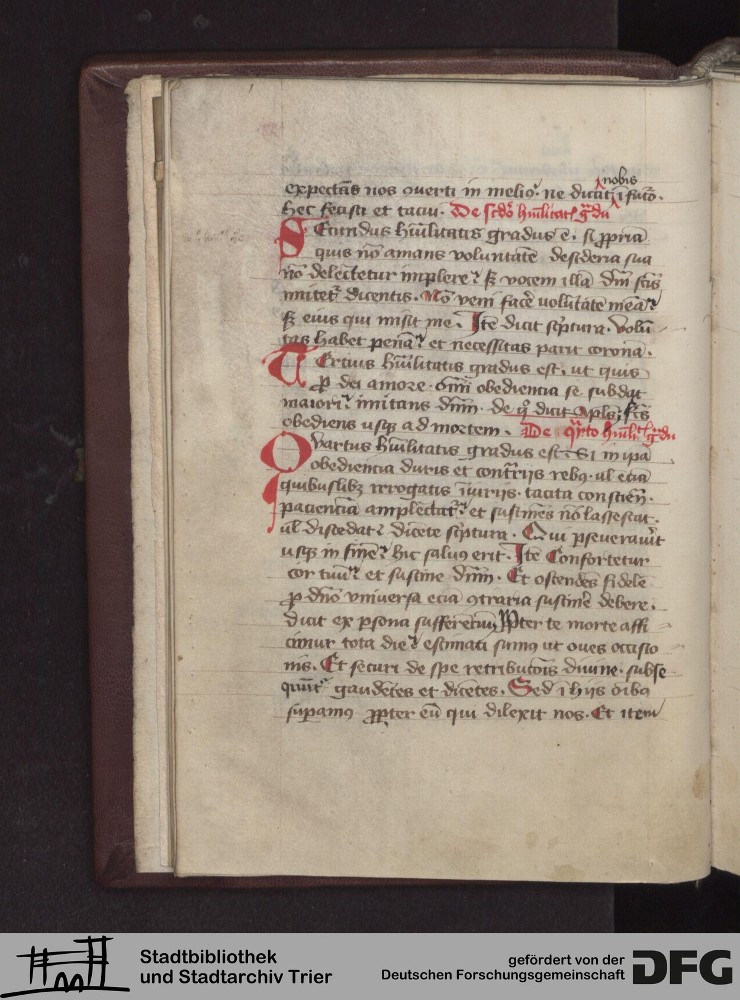 nobis
expectās nos ꝯuerti in melioꝰ. ne dicat ī futo.
hec fecisti et tacui. De scdo hūilitatis gradu
Secundus hūilitatis gradus ē. si ꝓpriā
quis nō amans voluntatē desideria sua
nō delectetur implere. sꝫ vocem illā dn̄i factis
imitet dicentis. Nō veni facē uolūtatē meā
sꝫ eius qui misit me. Itē dicit scptura. Volū
tas habet penā. et necessitas parit coronā.
Tercius hūilitatis gradus est. ut quis
ꝓ dei amore. om̄i obediencia se subdat
maiori. imitans dn̄m. de quo dicit apls. fcs
obediens usqꝫ ad mortem. De qrto hūil. gradu
Quartus hūilitatis gradus est. Si in ipā
obediencia duris et contrarijs rebꝰ. ul eciā
quibuslibꝫ irrogatis iniurijs. tacita conscien.
pacienciā amplectat. et sustinēs nō lassescat.
ul discedat. dicēte scptura. Qui pseuerauit
usqꝫ in finē. hic saluꝰ erit. Itē Confortetur
cor tuū. et sustine dn̄m. Et ostendēs fidelē
ꝓ dn̄o vniuersa eciā ꝯtraria sustinē debere.
dicit ex psona sufferenciū. Ppter te morte affi
cimur tota die. estimati sumꝰ ut oues occisio
nis. Et securi de spe retribucōis diuine. subse
quūt gaudētes et dicētes. Sed ī hijs oībꝰ
supamꝰ ꝓpter eū qui dilexit nos. Et item
Stadtbibliothek
und Stadtarchiv Trier
gefördert von der
Deutschen Forschungsgemeinschaft
DFG